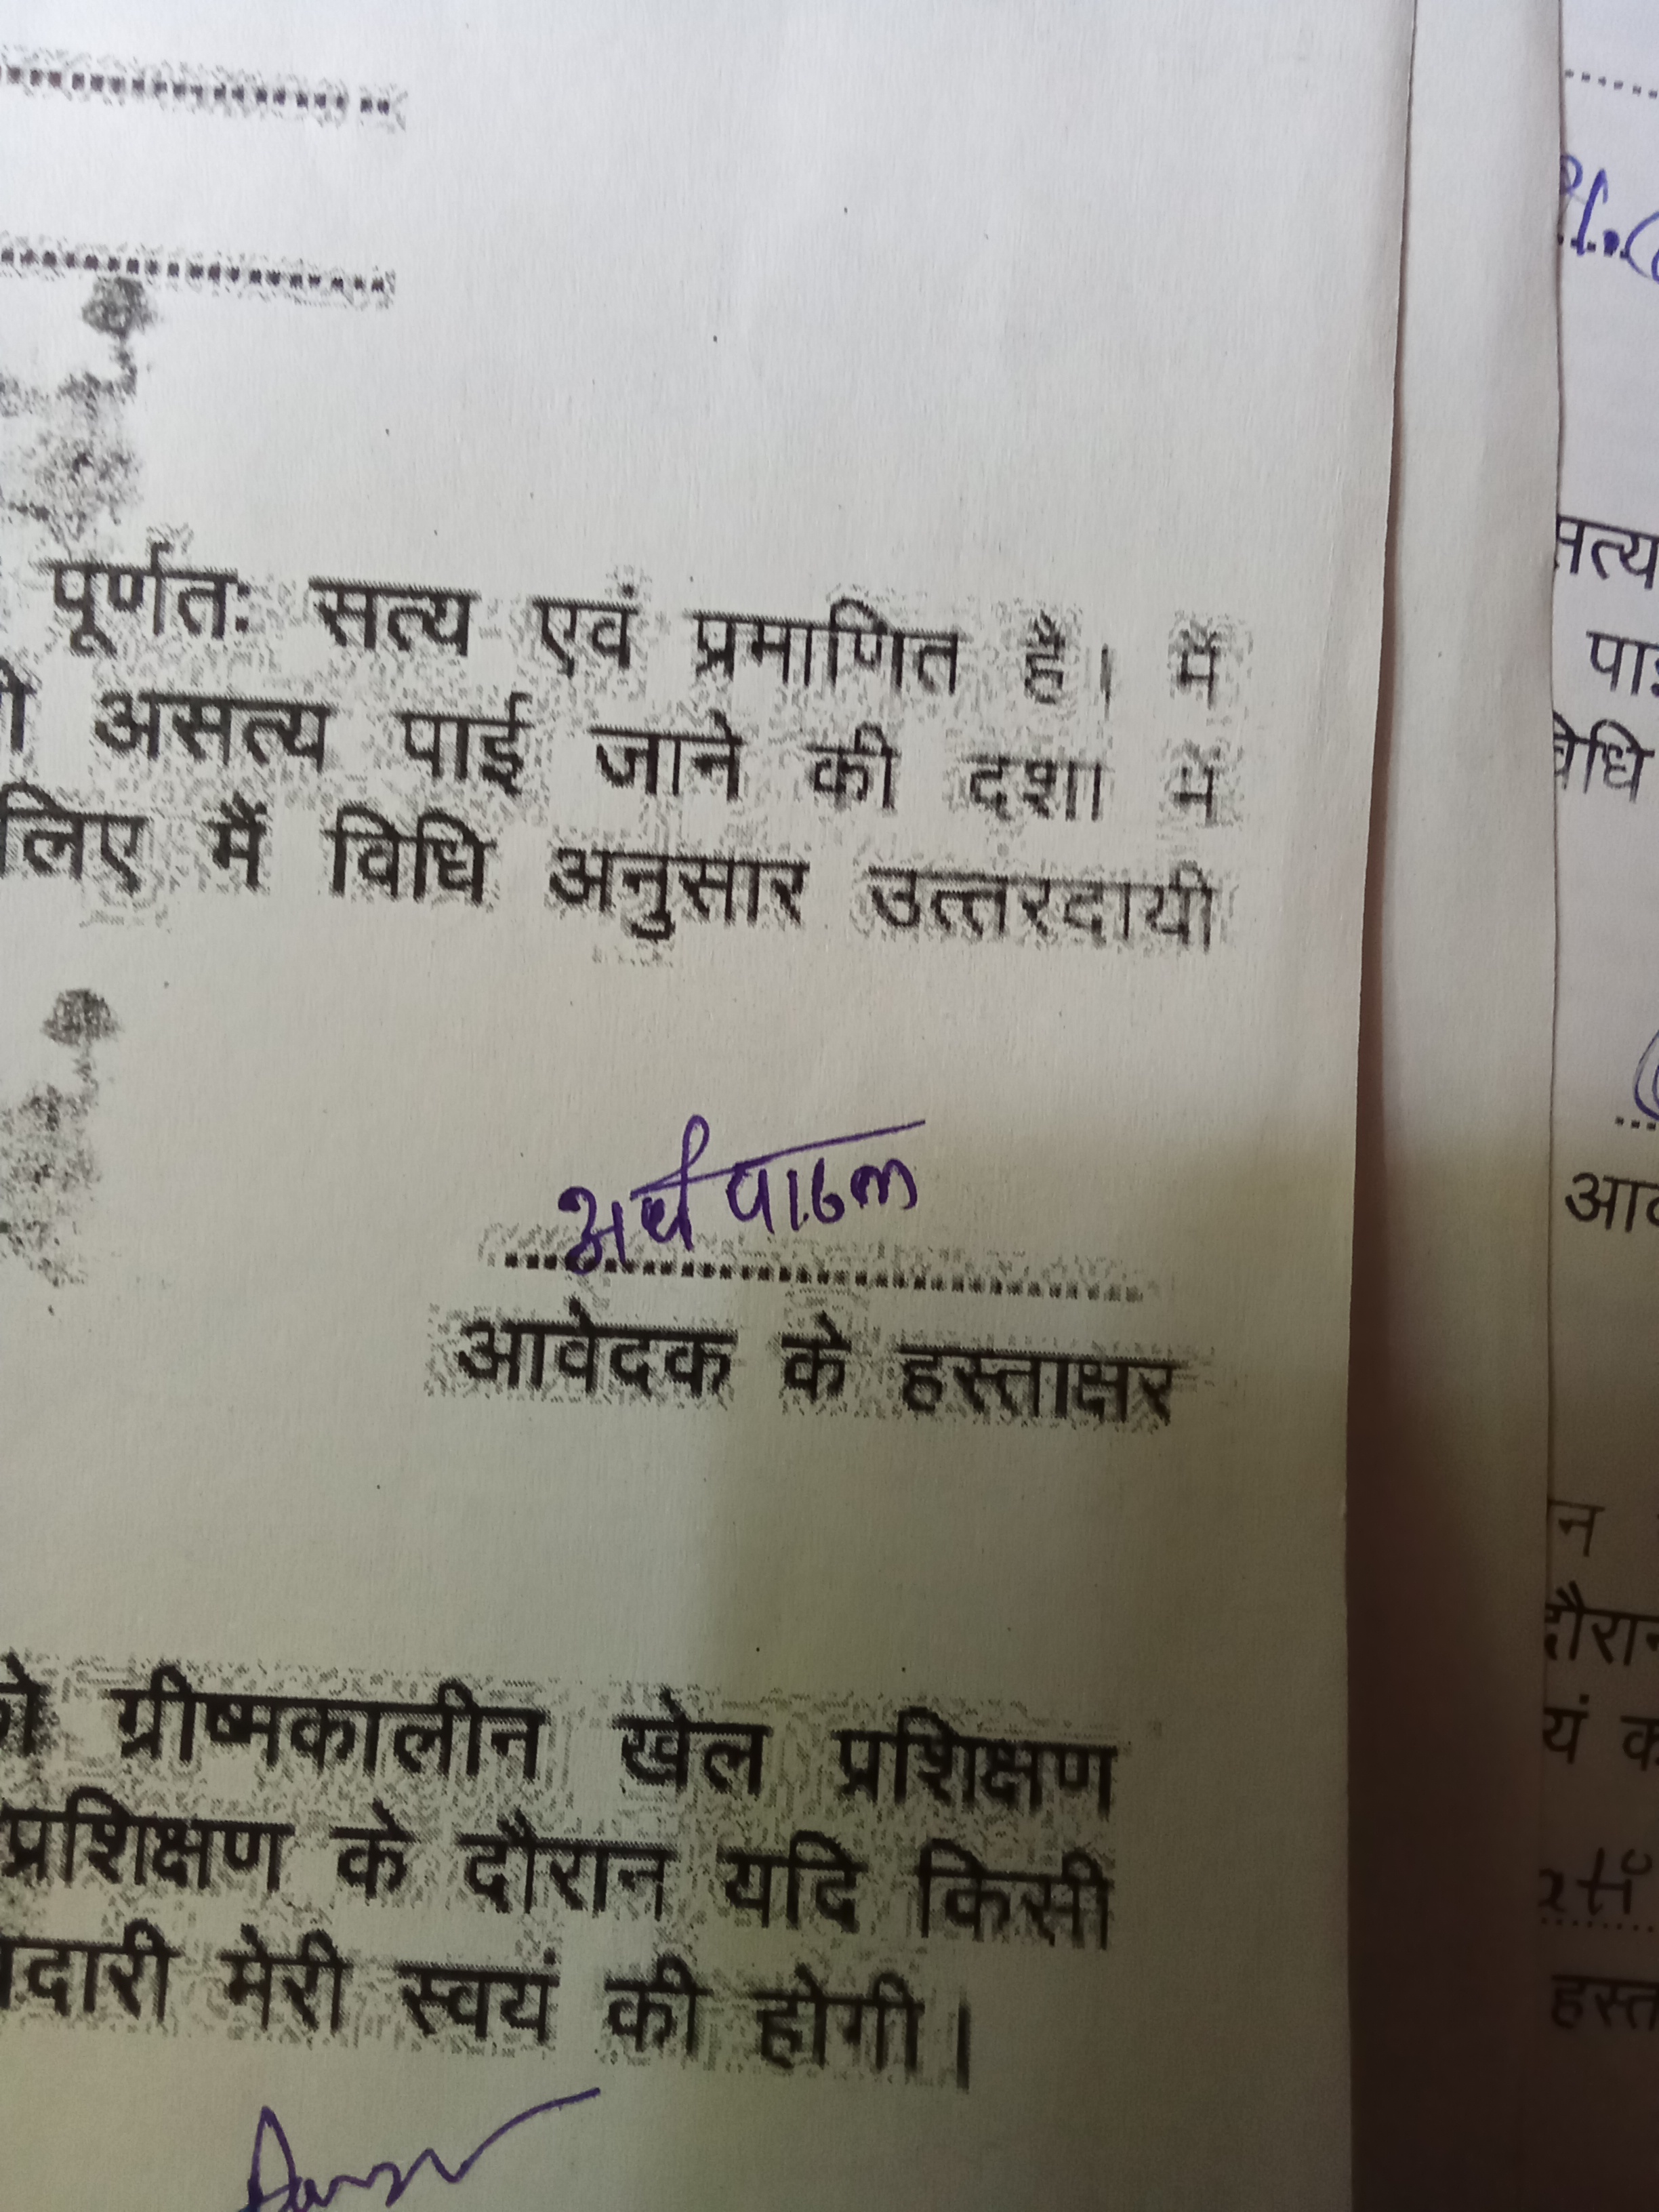 पूर्णतः सत्य एवं प्रमाणित है। मैं
असत्य पाई जाने की दशा में
लिए मैं विधि अनुसार उत्तरदायी
आवेदक के हस्ताक्षर
ग्रीष्मकालीन खेल प्रशिक्षण
प्रशिक्षण के दौरान यदि किसी
मेरी स्वयं की होगी।
सत्य
विधि
दौरान